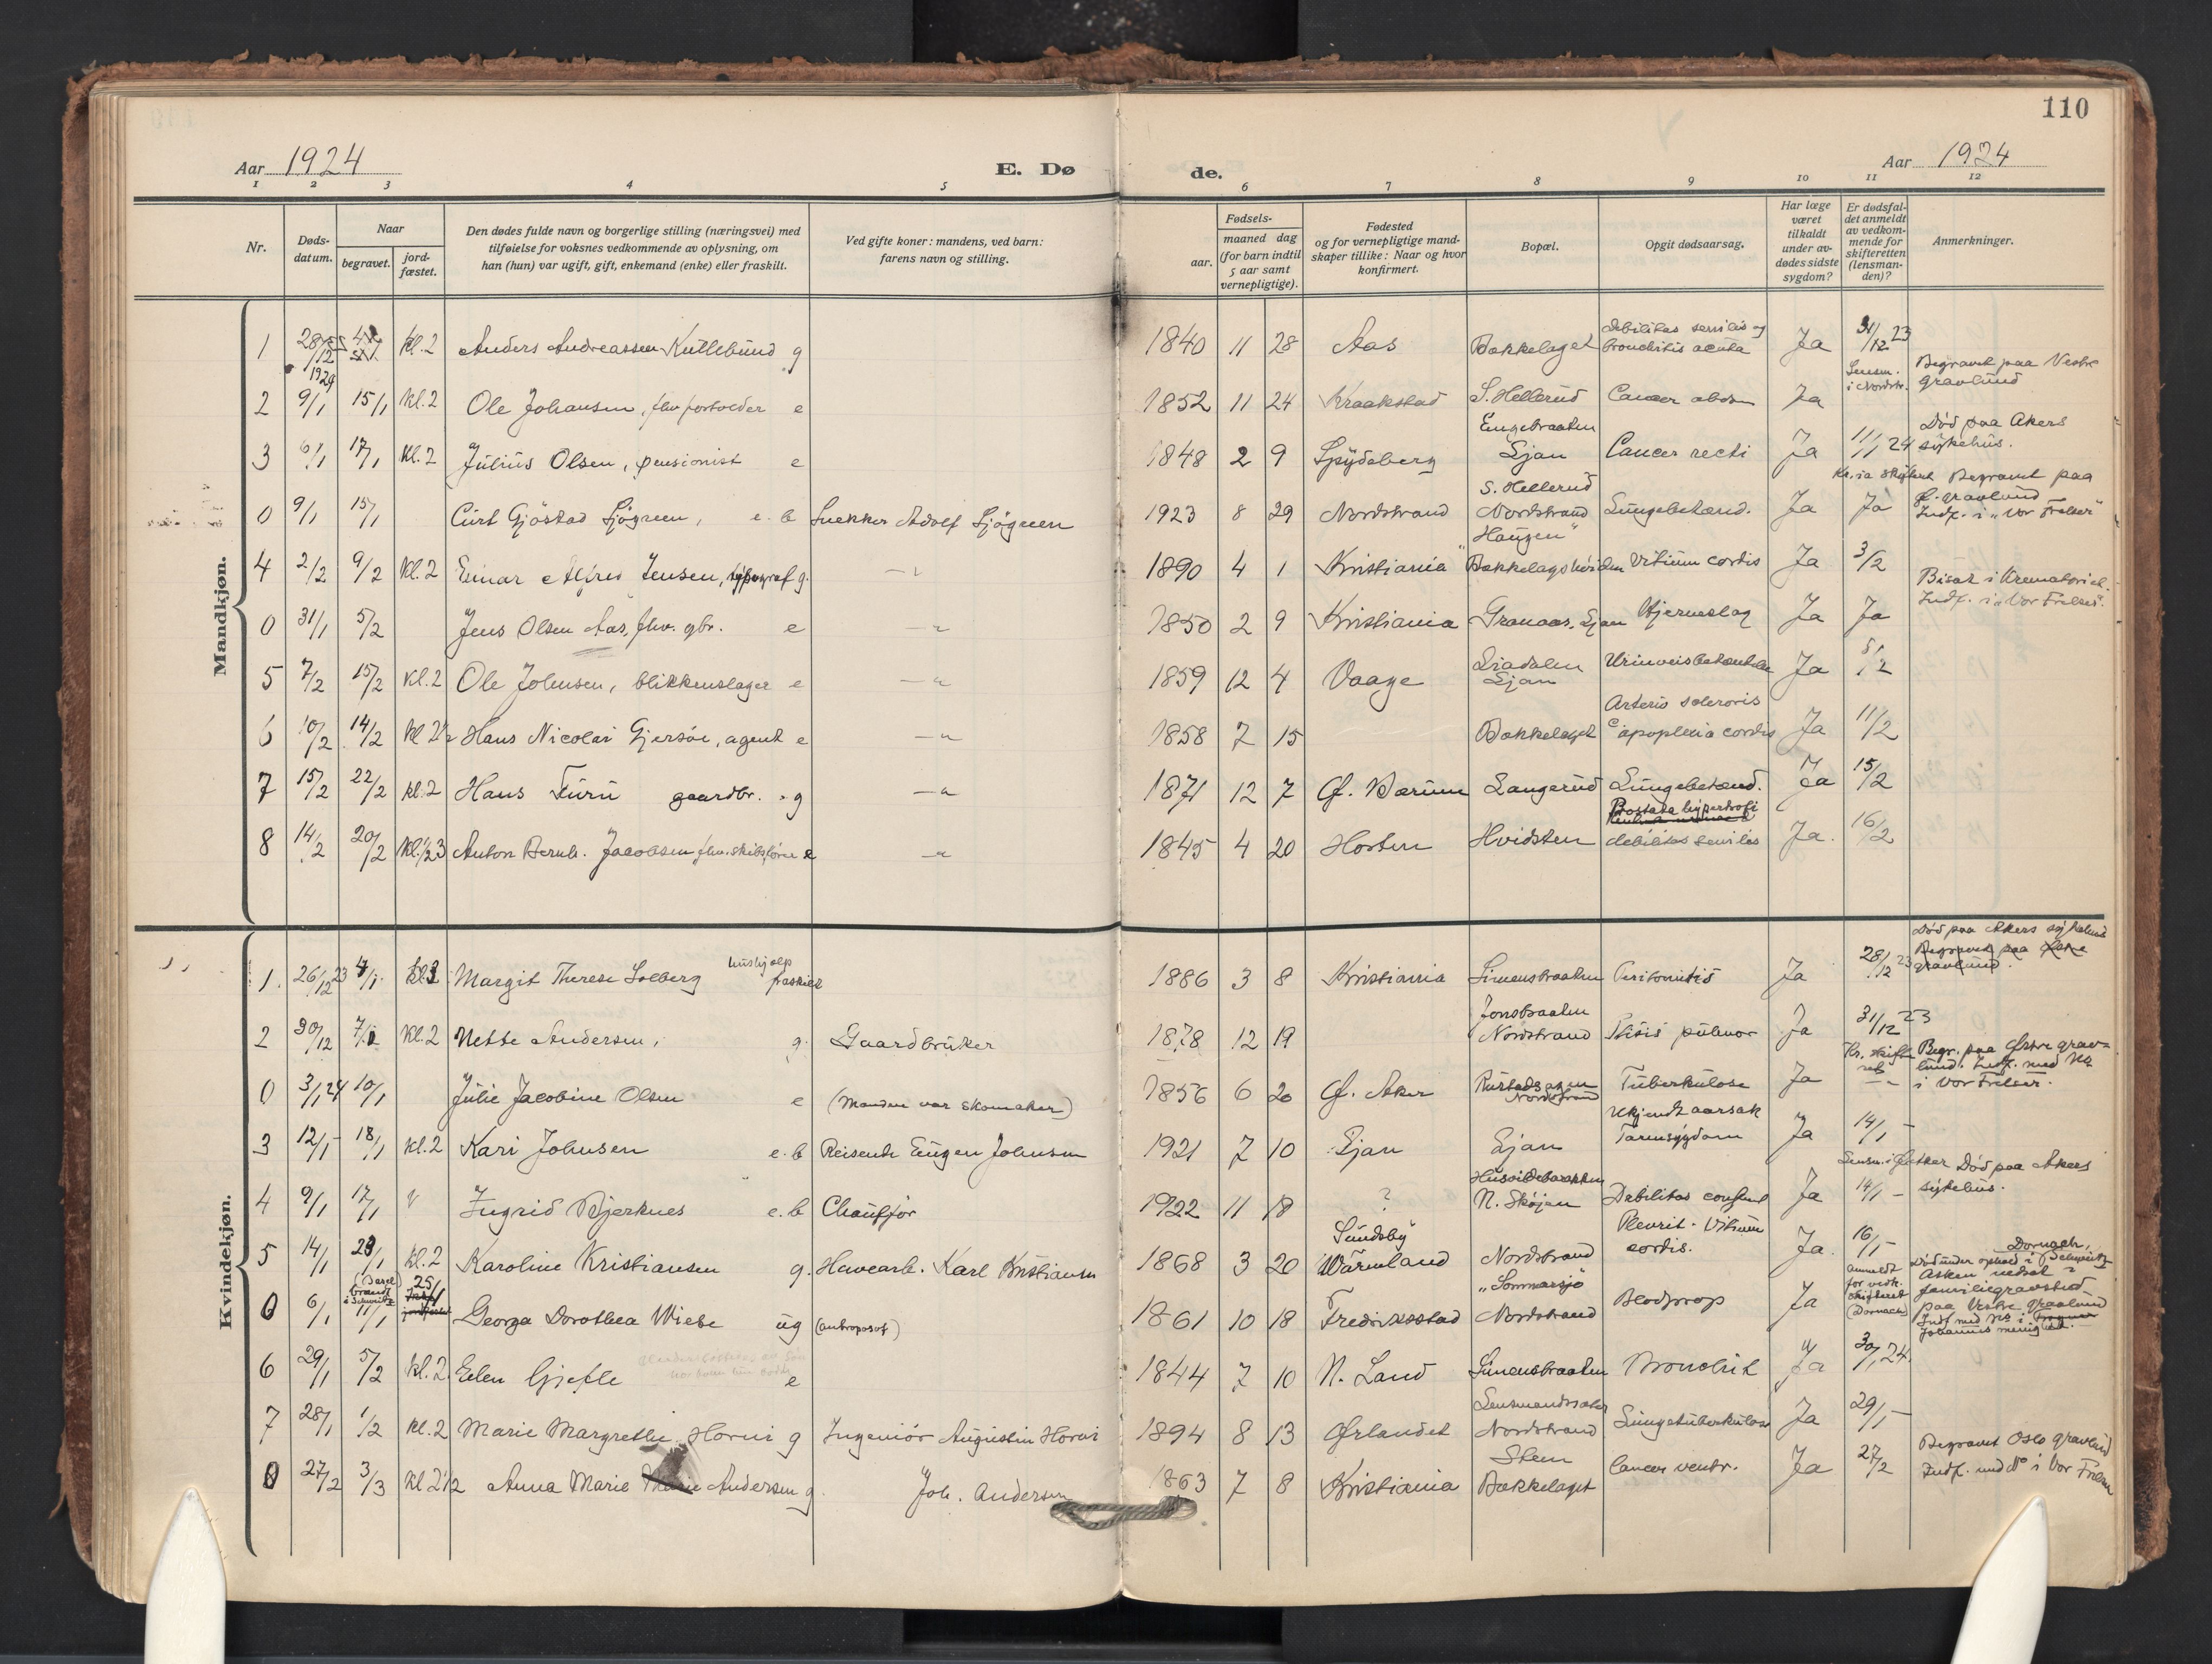 110
Aar 1924
E. Dø
de.
Aar 1924
1 2 3 4 5 6 7 8 9 10 11 12
Nr.
Døds-
datum.
Naar
begravet.
jord-
fæstet.
Den dødes fulde navn og borgerlige stilling (næringsvei) med
tilføielse for voksnes vedkommende av oplysning, om
han (hun) var ugift, gift, enkemand (enke) eller fraskilt.
Ved gifte koner: mandens, ved barn:
farens navn og stilling.
Fødsels-
aar.
maaned dag
(for barn indtil
5 aar samt
vernepligtige).
Fødested
og for vernepligtige mand-
skaper tillike: Naar og hvor
konfirmert.
Bopæl.
Opgit dødsaarsag.
Har læge
været
tilkaldt
under av-
dødes sidste
sygdom?
Er dødsfal-
det anmeldt
av vedkom-
mende for
skifteretten
(lensman-
den)?
Anmerkninger.
Mandkjøn.
1 28/12 kl. 2 Anders Andreassen Kullebund g 1840 11 28 Aas Bækkelaget Debilitas senilis og bronchitis acuta Ja 31/12 23
1924
2 9/1 15/1 kl. 2 Ole Johansen, fhv. e 1852 11 24 Kraakstad S. Hellerud Cancer abdom Ja Lensm. i Nordstr. Begravet paa Vestre gravlund
3 6/1 17/1 kl. 2 Julius Olsen, pensionist e 1848 2 9 Spydeberg Engebraaten Ljan Cancer recti Ja 11/1 24 Død paa Akers sykehus.
0 9/1 15/1 Curt Gjöstad Sjögreen, e. b Snekker Adolf Sjögreen 1923 8 29 Nordstrand S. Hellerud Nordstrand Lungebetænd. Ja Ja Begravet paa Ø. gravlund Indf. i "Vor Frelser"
4 2/2 9/2 kl. 2 Einar Alfred Jensen, typograf g. 1890 4 1 Kristiania "Haugen" Bækkelagshøiden Vitium cordis Ja 3/2
0 31/1 5/2 Jens Olsen Aas, fhv. gbr. e 1850 2 9 Kristiania Granaas, Ljan Hjerneslag Ja Ja Bisat i Krematoriet Indf. i "Vor Frelser".
5 7/2 15/2 kl. 2 Ole Johnsen, blikkenslager e 1859 12 4 Vaage Liadalen Ljan Urinveisbetændelse Ja 8/2
6 10/2 14/2 kl 2½ Hans Nicolai Gjersøe, agent e 1858 7 15 Bækkelaget Arterio sclerosis apoplexia cordis Ja 11/2
7 15/2 22/2 kl. 2 Hans Furu gaardbr. g 1871 12 7 Ø. Bærum Langerud Lungebetænd. Ja 15/2
8 14/2 20/2 Anton Bernh. Jacobsen fhv. e 1845 4 20 Horten Hvidsten Prostata hypertrofi debilitas senilis Ja. 16/2
Kvindekjøn.
1. 26/12 23 4/1 Margit Therese Solberg hushjælp fraskilt 1886 3 8 Kristiania Simensbraaten Peritonitis Ja 28/12 23 Død paa Akers sykehus Begravet paa gravlund.
2 30/12 7/1 kl. 2 Nette Andersen, g. Gaardbruker 1878 12 19 Jonsbraaten Nordstrand Ptisis pulmor Ja 31/12 23
0 3/1 24 10/1 Julie Jacobine Olsen e (Manden var skomaker) 1856 6 20 Ø. Aker Nordstrand Tuberkulose Ja Begr. paa Østre gravlund. Indf. med No i Vor Frelser.
3 12/1 18/1 kl. 2 Kari Johnsen e. b Reisende Eugen Johnsen 1921 7 10 Ljan Ljan Ukjendt aarsak Tarmsygdom Ja 14/1
4 9/1 17/1 Ingrid Bjerknes e. b Chauffør 1922 11 18 ? Husvildebarakken N. Skøjen Ja 14/1 Død paa Akers sykehus.
5 14/1 kl. 2 Karoline Kristiansen g. Havearb. Karl Kristiansen 1868 3 20 Sundsby Wärmland Nordstrand Pleurit. Vitium cordis. Ja. 16/1
0 6/1 11/1 Georga Dorothea Wiebe ug (antroposof) 1861 10 18 Fredriksstad "Sommarsjö" Nordstrand Blodprop Ja (Dornach) Død under ophold i Dornach, Schweitz Asken nedsat i familiegravsted paa Vestre gravlund
6 29/1 5/2 kl. 2 Elen Gjefle e 1844 7 10 N. Land Simensbraaten Bronchit Ja 30/1 24.
7 28/1 1/2 kl. 2 Marie Margrethe Horni g Ingeniør Augustin Horni 1894 8 13 Ørlandet Nordstrand Lungetuberkulose Ja 29/1
0 27/2 3/3 kl 2½ Anna Marie Andersen g. Joh. Andersen 1863 7 8 Kristiania Bækkelaget Cancer ventr. Ja 27/2 Begravet Oslo gravlund Indf. med No i Vor Frelser